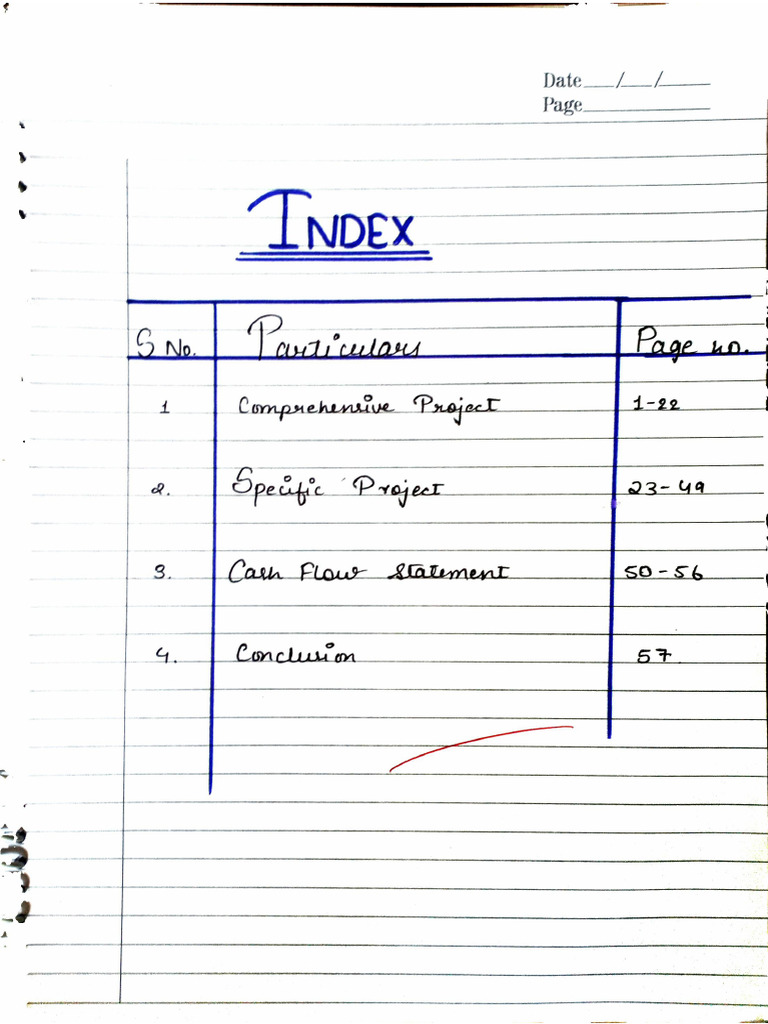 Date___/___/_____
Page____________
INDEX
S No. Particulars Page no.
1 Comprehensive Project 1-22
2. Specific Project 23-49
3. Cash Flow Statement 50-56
4. Conclusion 57